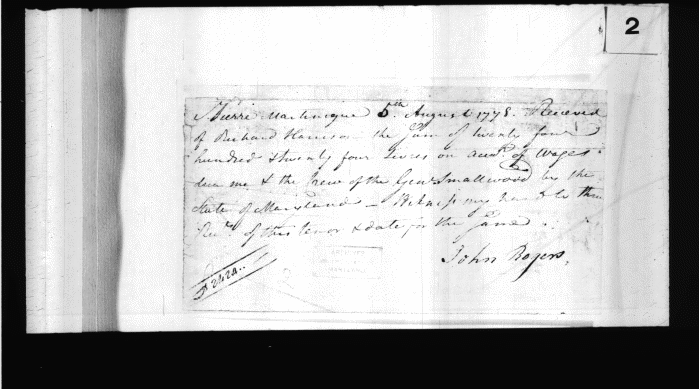 2
St Pierre Martinique 5th August 1778. Received
of Richard Harrison the Sum of twenty four
hundred & twenty four Livres on accot. of Wages
due me & the Crew of the Genl Smallwood by the
State of Maryland — Witness my hand to three
Rects. of this tenor & date for the Same
John Rogers,
2424..